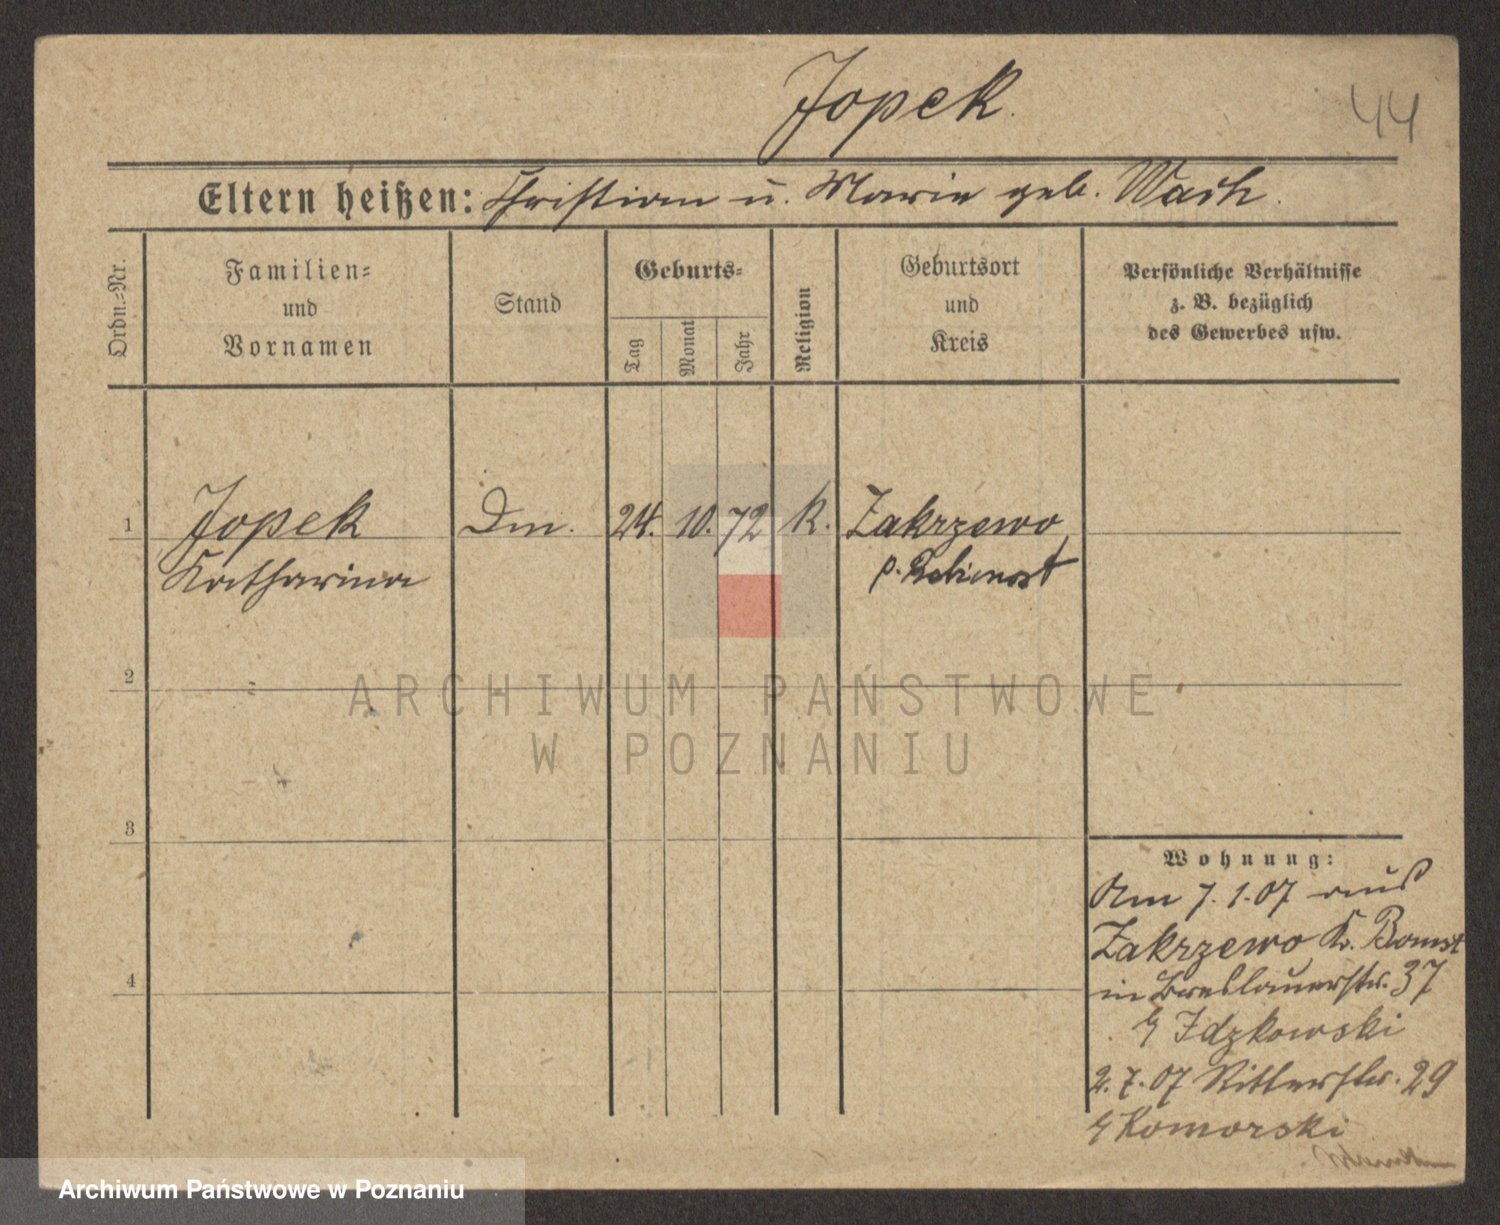 Jopek.
44
Eltern heißen: Christian u. Marie geb. Wach.
Ordn.-Nr.
Familien-
und
Vornamen
Stand
Geburts-
Tag
Monat
Jahr
Religion
Geburtsort
und
Kreis
Persönliche Verhältnisse
z. B. bezüglich
des Gewerbes usw.
1 Jopek Dm. 24. 10. 72 K. Zakrzewo
Katharina p.
2
3
4
Wohnung:
Am 7.1.07 aus
Zakrzewo Kr. Bomst
in Breslauerstr. 37
b/ Idzkowski
2.7.07 Ritterstr. 29
b/ Komorski
ARCHIWUM PAŃSTWOWE
W POZNANIU
Archiwum Państwowe w Poznaniu